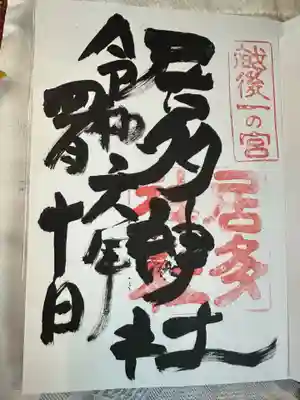 越後一の宮
居多神社
居多神社
令和六年
四月十日